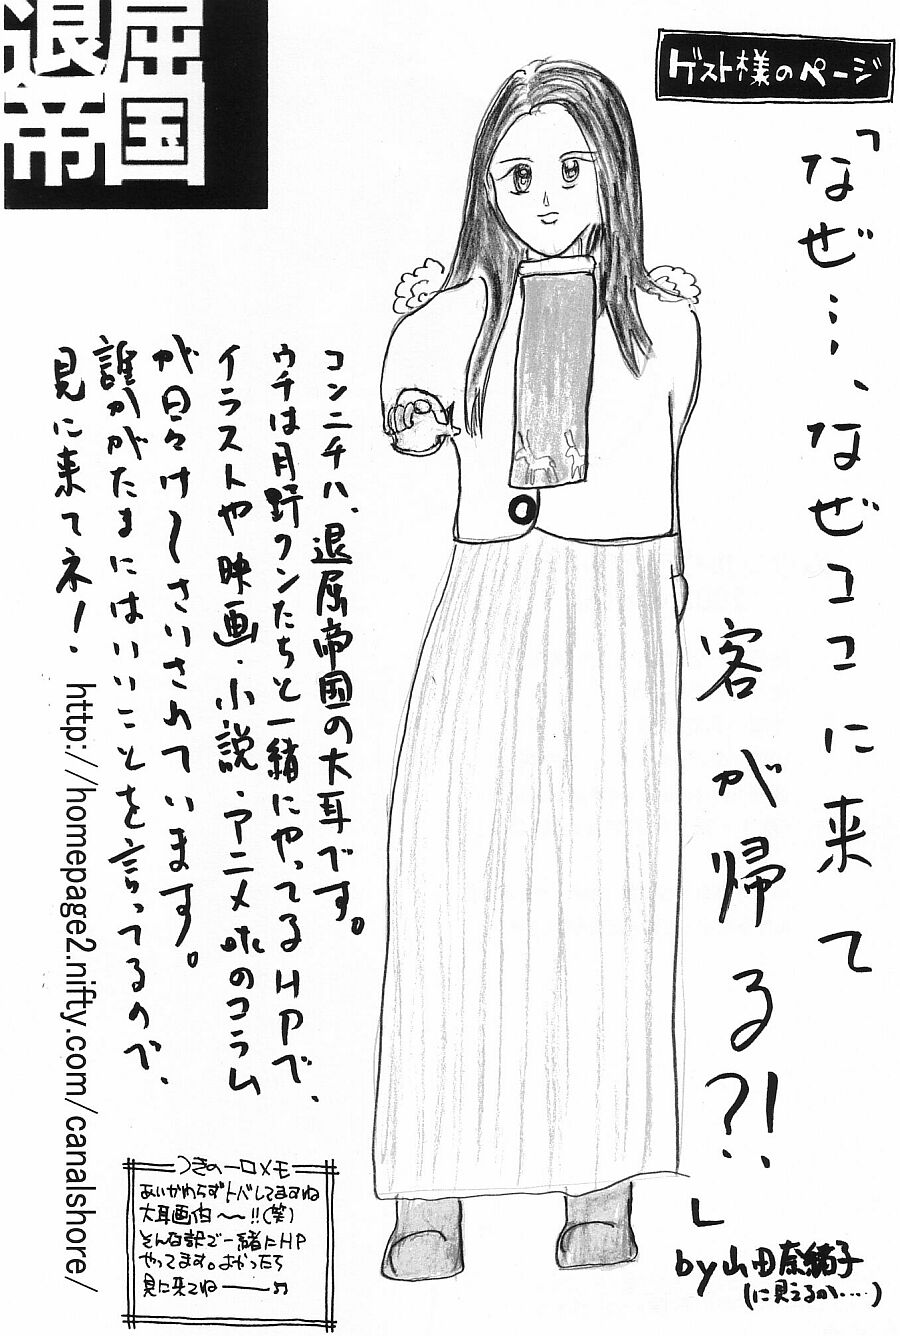 ゲスト様のページ
退屈
帝国
「なぜ…、なぜココに来て
客が帰る?!」
by山田奈緒子
(に見えるか…‥)
コンニチハ、退屈帝国の大耳です。
ウチは月野クンたちと一緒にやってるHPで、
イラストや映画・小説・アニメetcのコラム
が日々け〜さいされています。
誰かがたまにはいいことを言ってるので、
見に来てネ!
http://homepage2.nifty.com/canalshore/
つきの一口メモ
あいかわらずトバしてますね
大耳画伯〜〜!!(笑)
そんな訳で一緒にHP
やってます。よかったら
見に来てね───♫